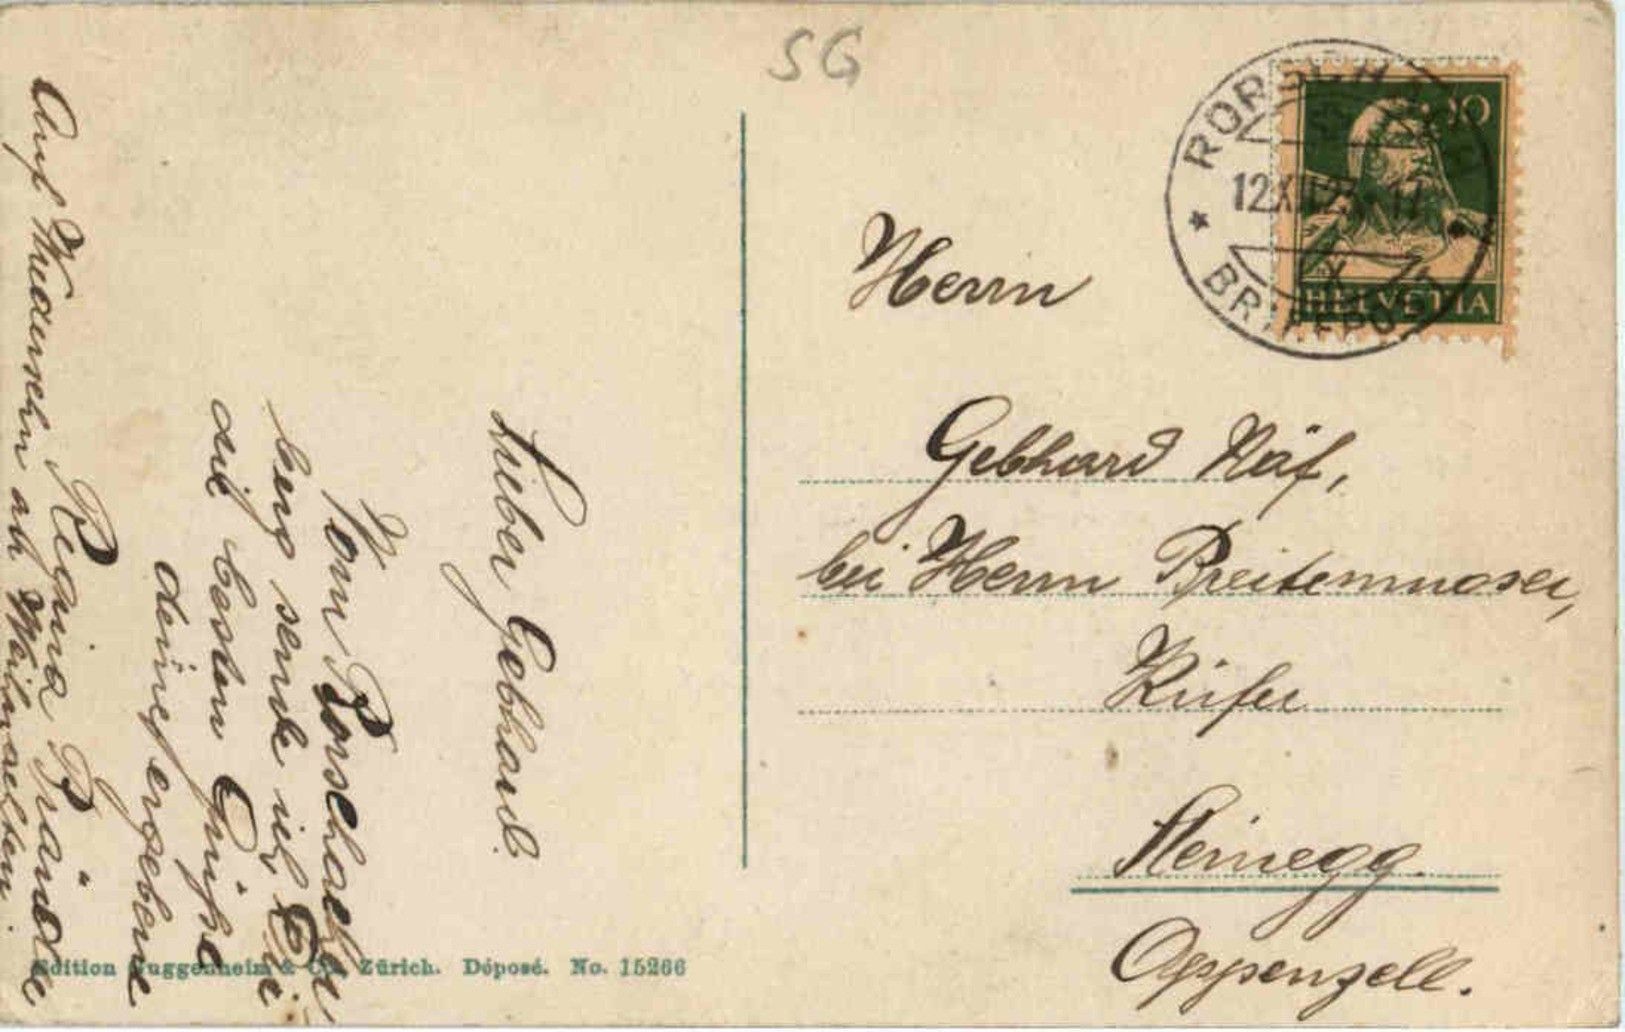 SG
Lieber Gebhard.
Vom Rorschacher
berg sende ich Dir
die besten Grüße
deine ergebene
Regina Brändle
Auf Wiedersehn an Weihnachten.
Edition Guggenheim & Co., Zürich. Déposé. No. 15266
10
HELVETIA
RORSCHACH
12.XII.23. 17
BRIEFPOST
Herrn
Gebhard Näf,
bei Herrn Breitenmoser,
Küfer
Steinegg.
Appenzell.